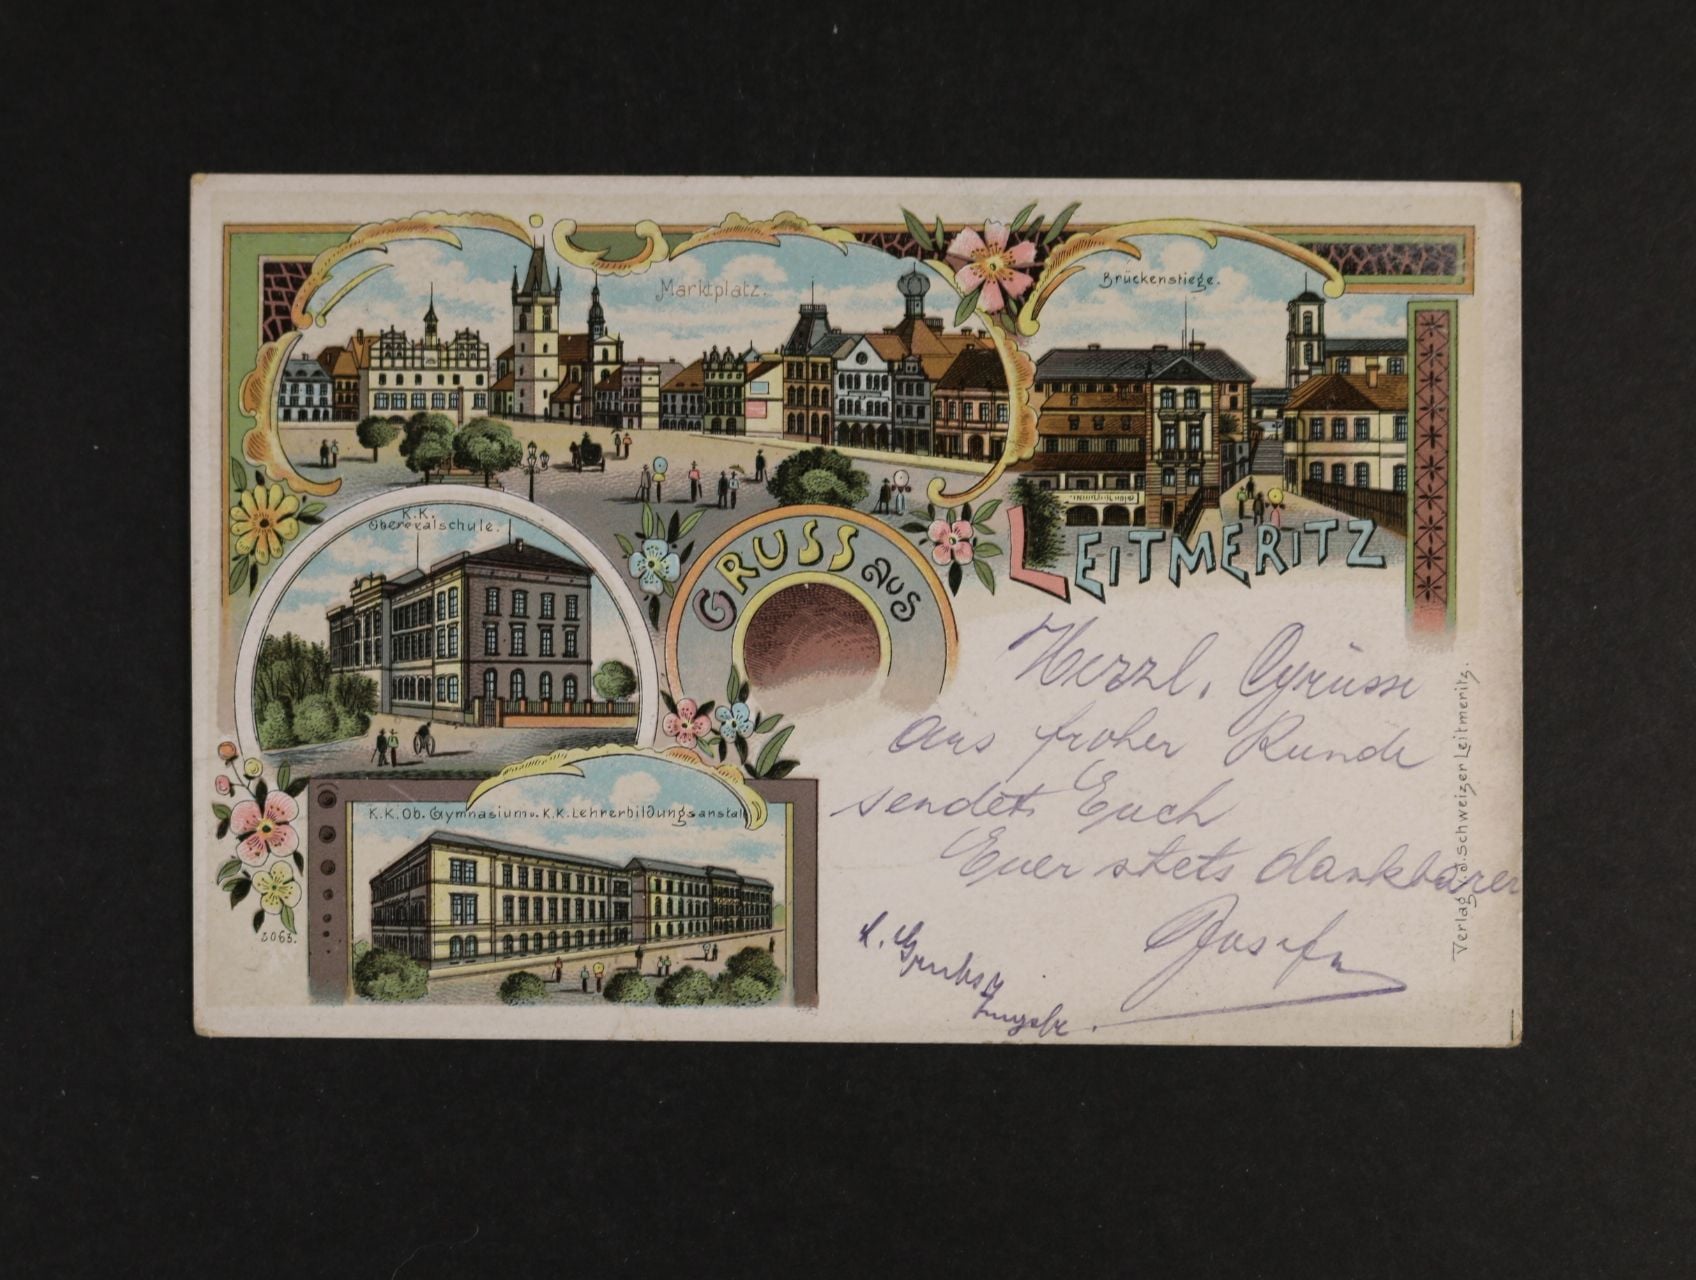 Marktplatz.
Brückenstiege.
K.K.
Oberrealschule.
GRUSS aus
LEITMERITZ
K.K. Ob. Gymnasium u. K.K. Lehrerbildungsanstalt
5063.
Verlag v. J. Schweizer Leitmeritz.
Herzl. Grüsse
aus froher Runde
sendet Euch
Euer stets dankbarer
Josef